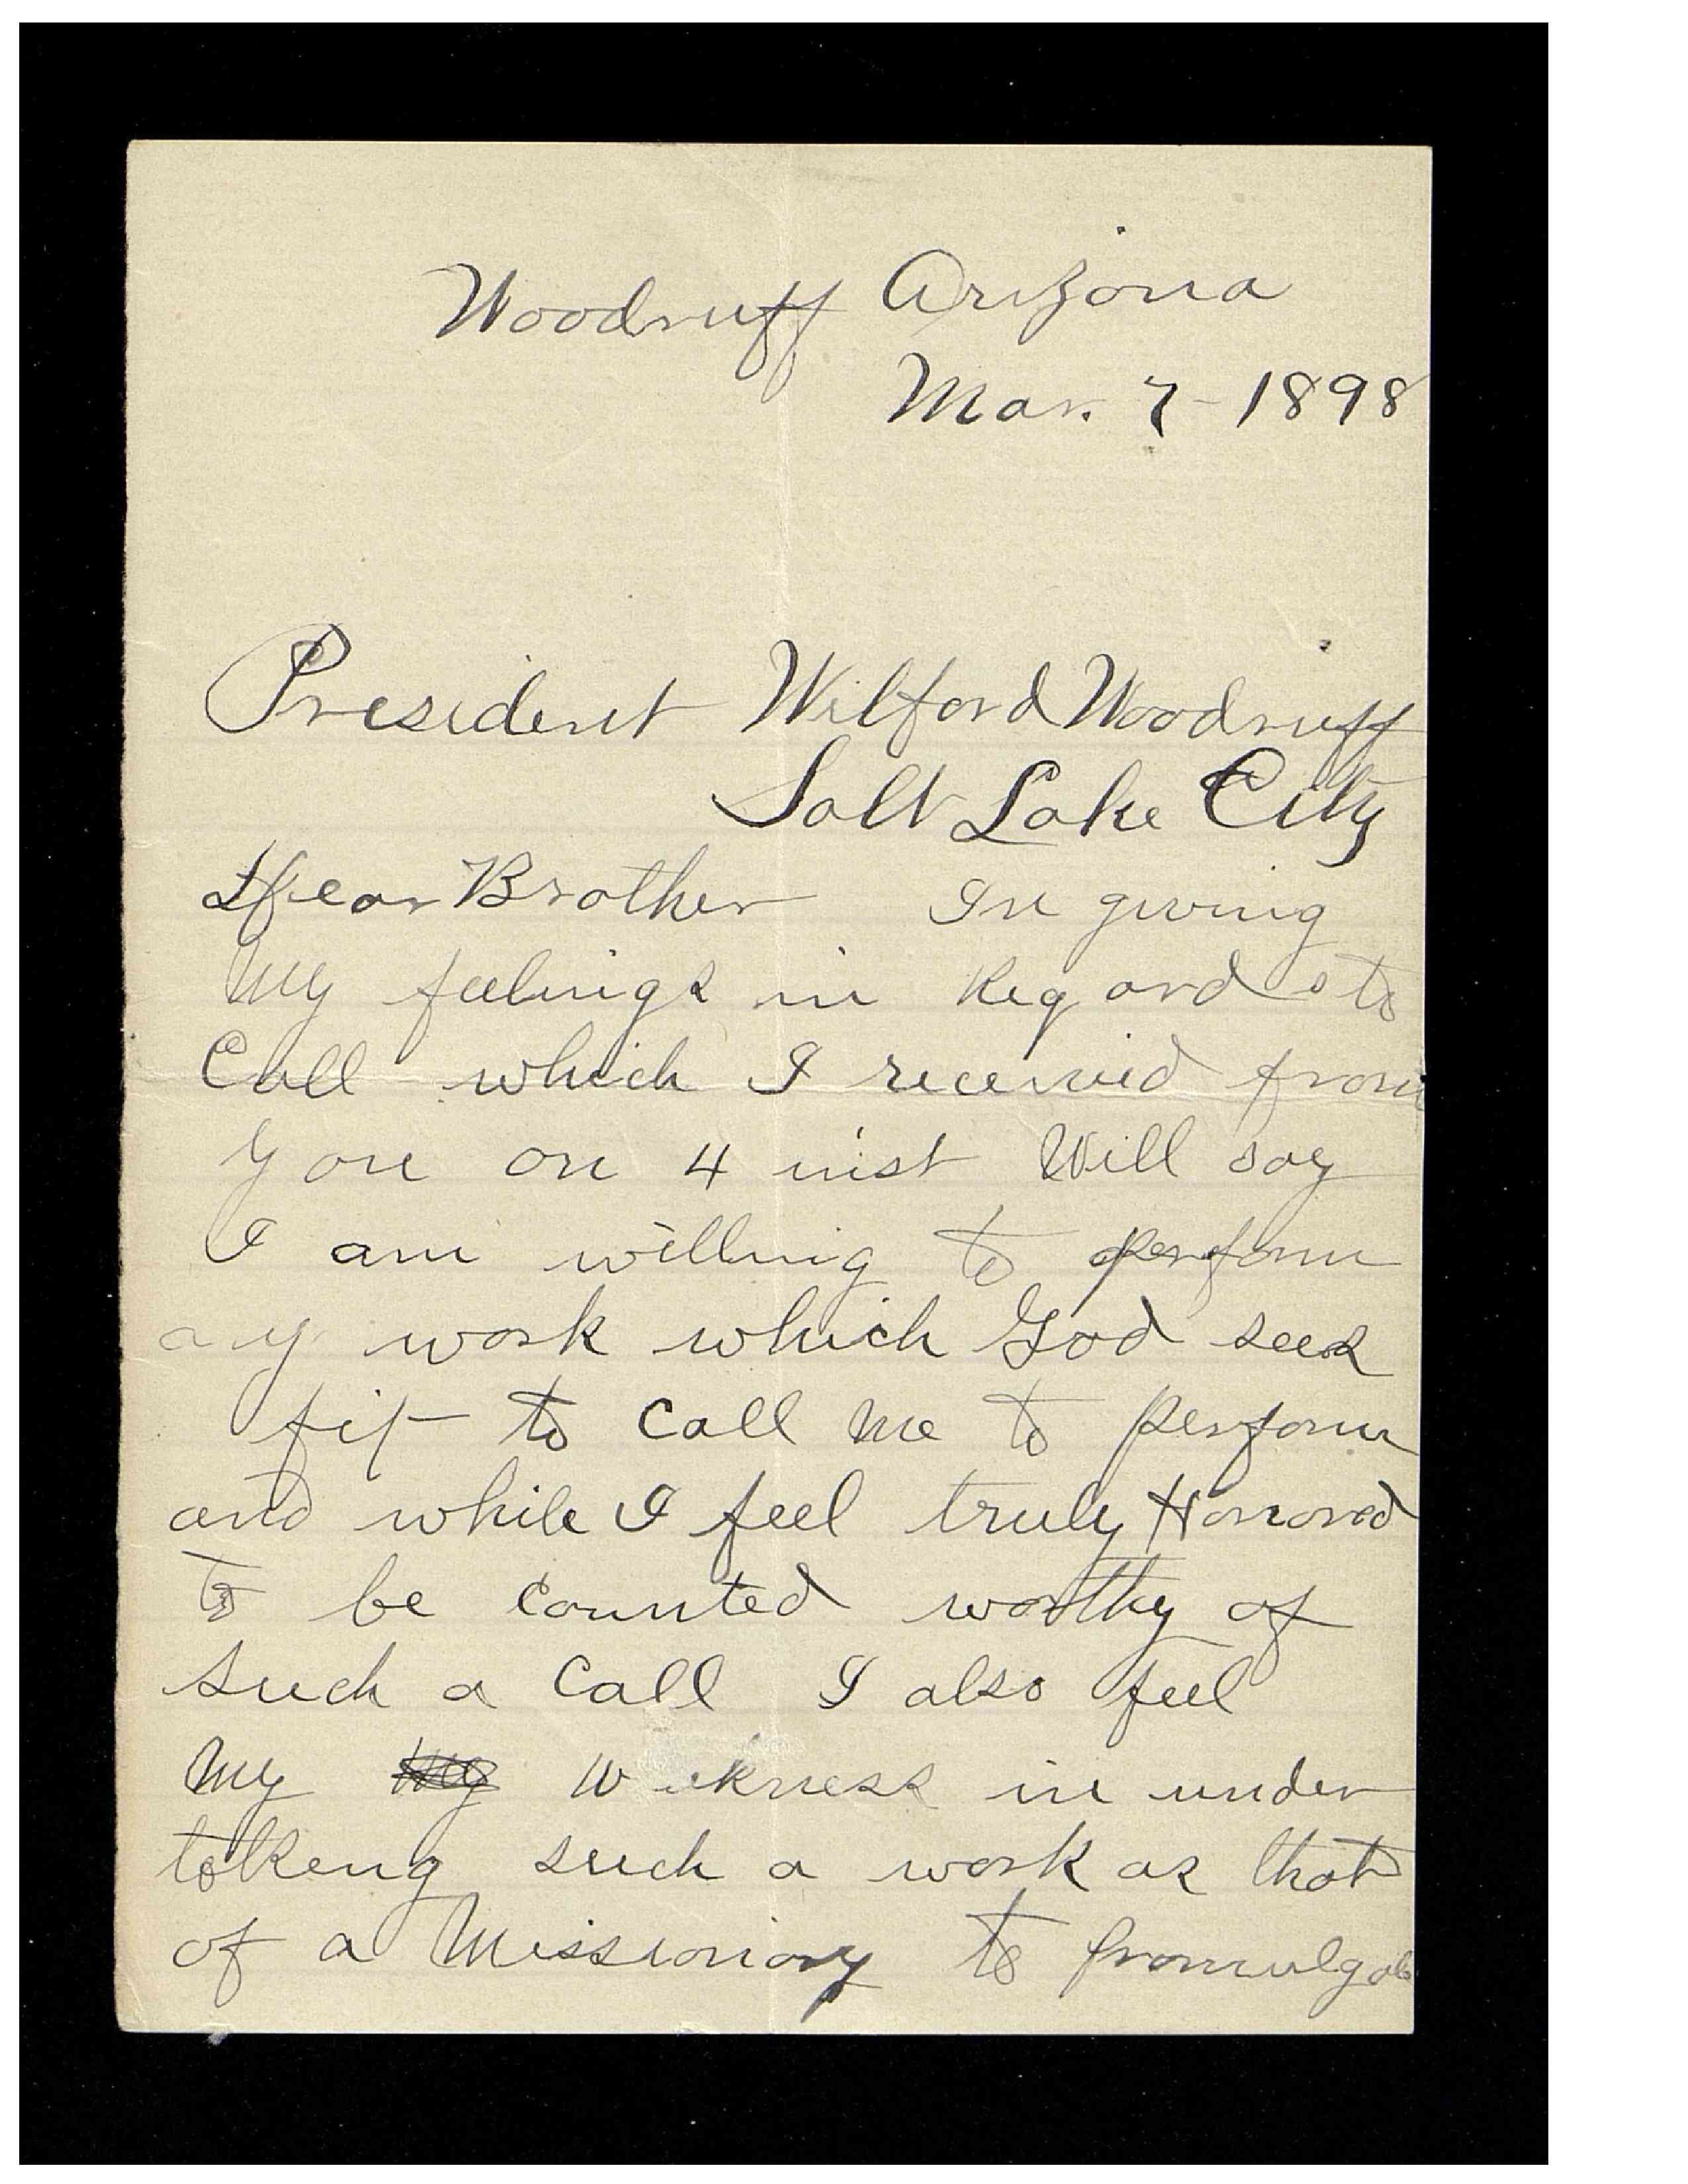 Woodruff Arizona
Mar. 7 - 1898
President Wilford Woodruff
Salt Lake City
Dear Brother In giving
My feelings in Regard to
Call which I received from
you on 4 inst Will say
I am willing to perform
any work which God sees
fit to Call Me to perform
and while I feel truly Honored
to be Counted worthy of
such a Call I also feel
My in under
takeng such a work as that
of a Missionary to promulgate